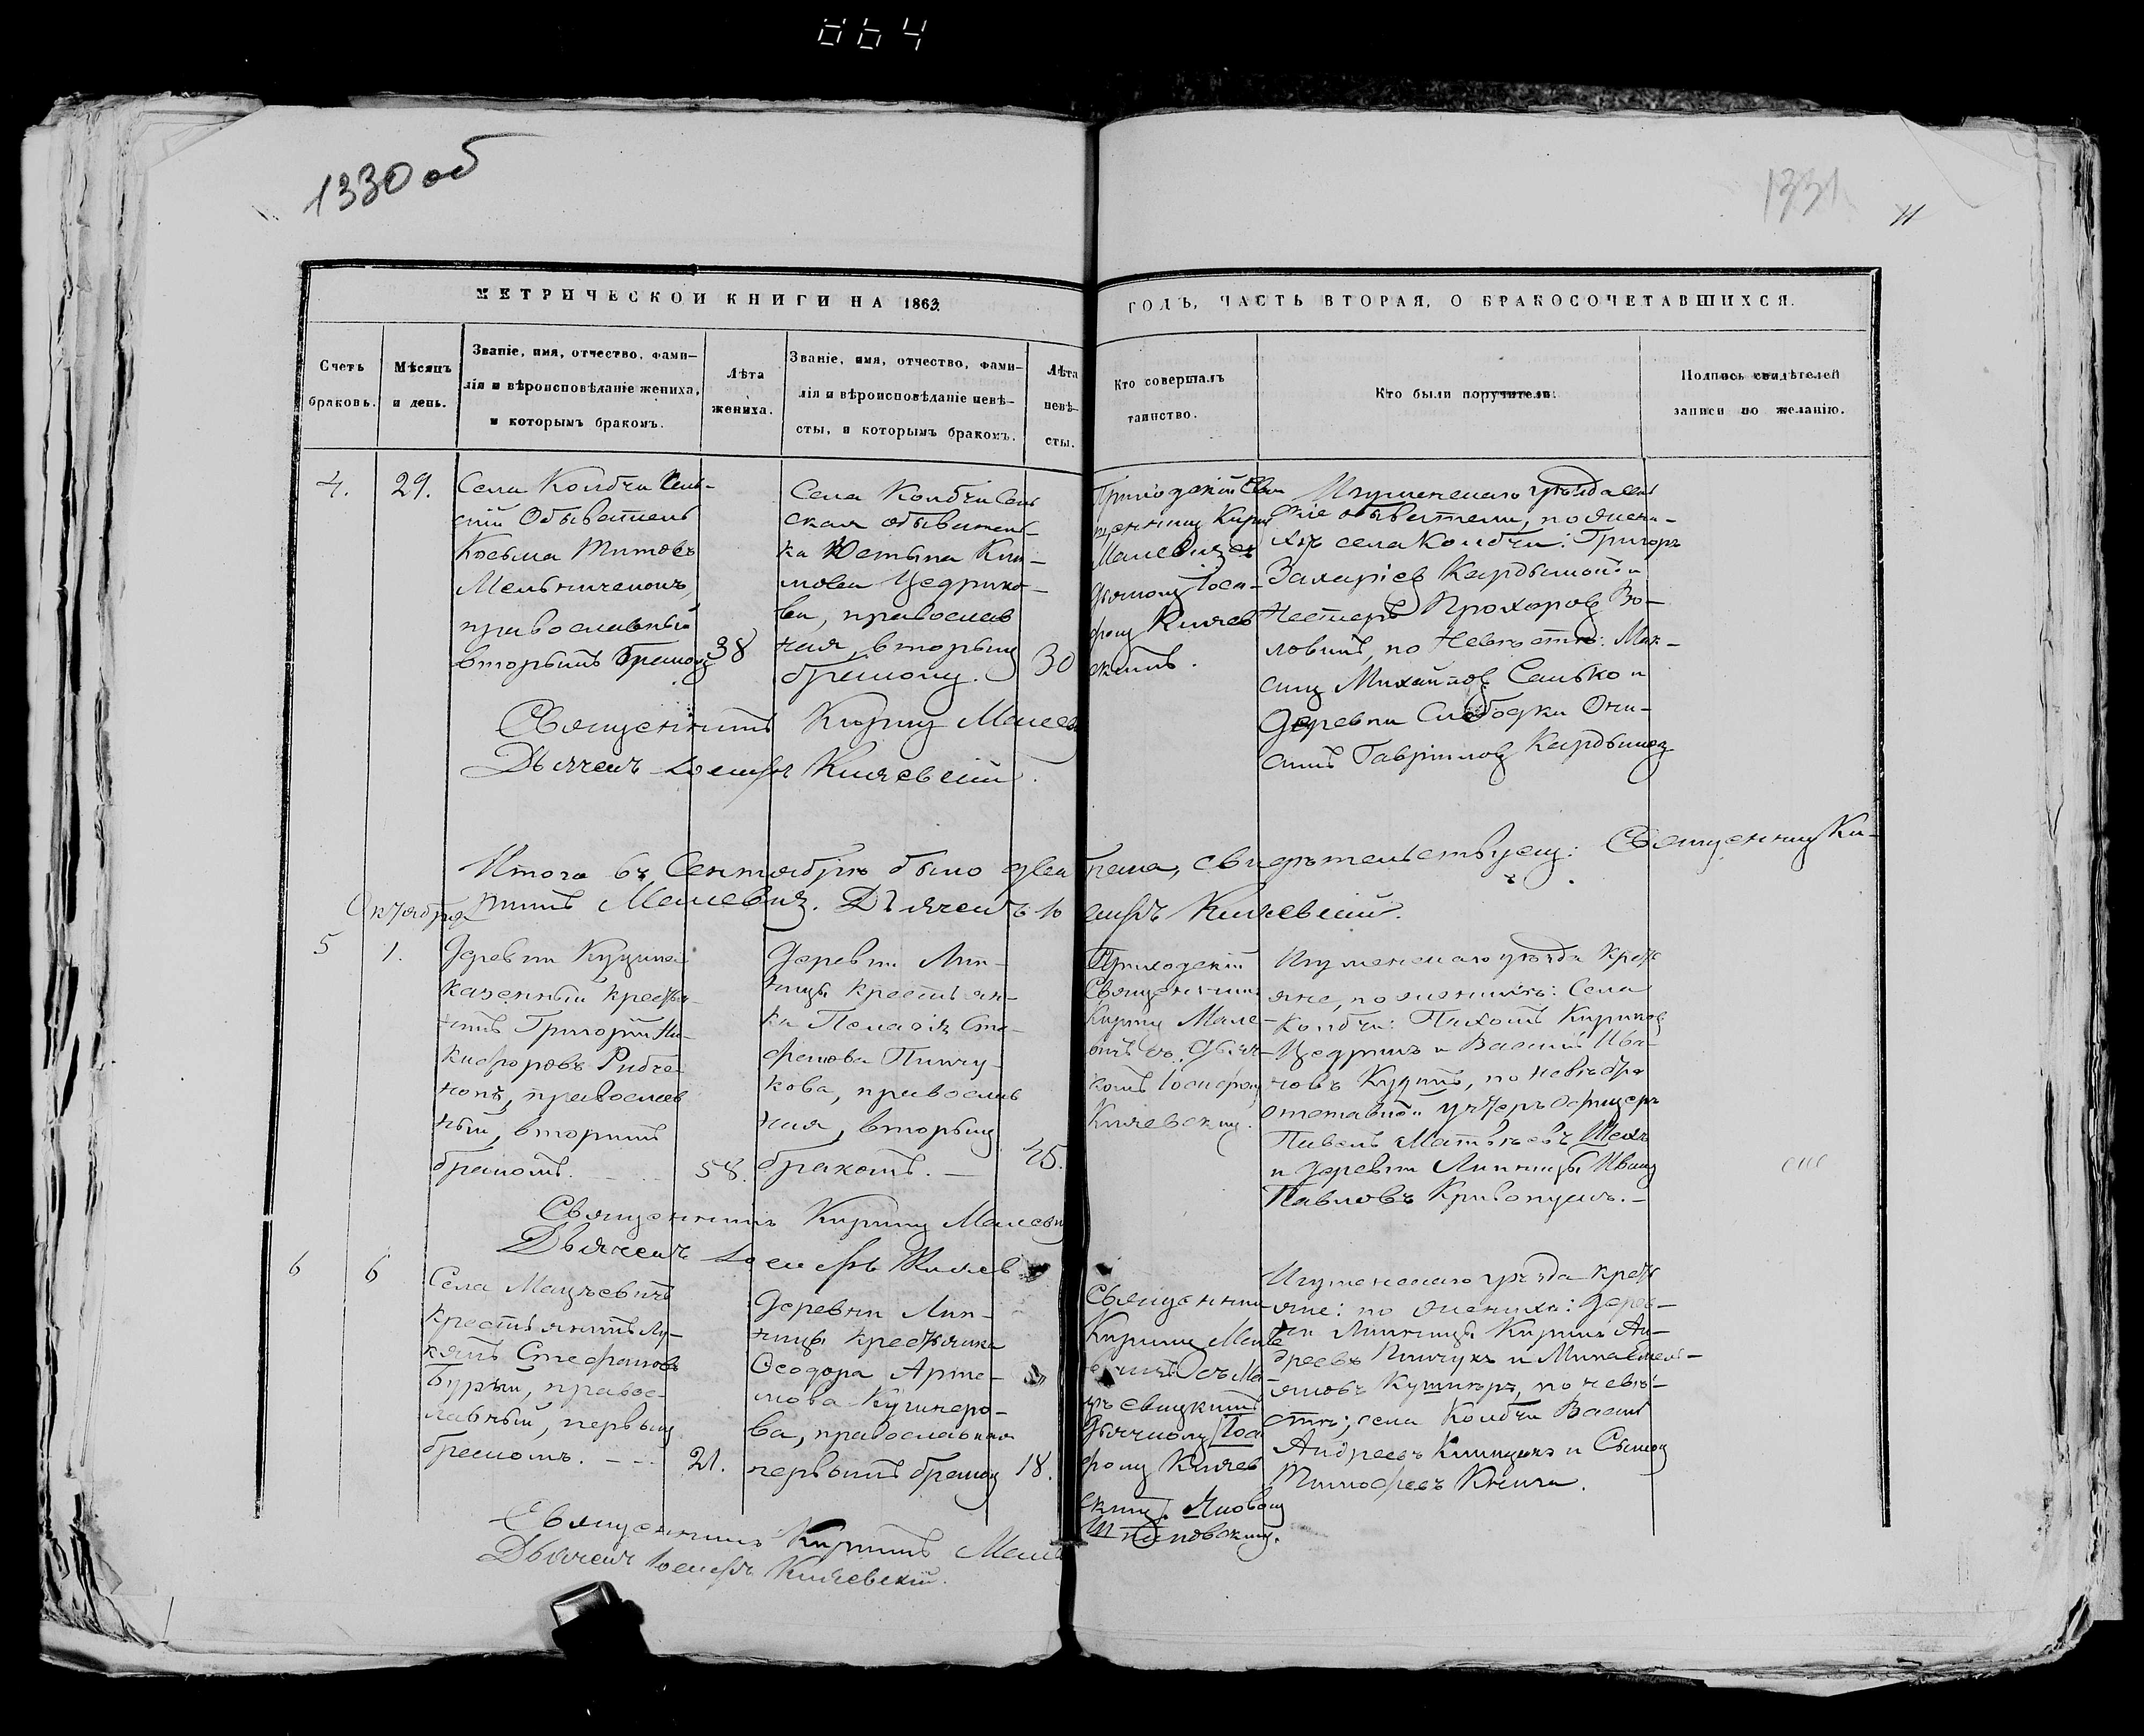 664
1330 об
1331
11
МЕТРИЧЕСКОЙ КНИГИ НА 1863.
ГОДЪ, ЧАСТЬ ВТОРАЯ, О БРАКОСОЧЕТАВШИХСЯ.
Счетъ
браковъ.
Мѣсяцъ
и день.
Званіе, имя, отчество, фами-
лія и вѣроисповѣданіе жениха,
и которымъ бракомъ.
Лѣта
жениха.
Званіе, имя, отчество, фами-
лія и вѣроисповѣданіе невѣ-
сты, и которымъ бракомъ.
Лѣта
невѣ-
сты.
Кто совершалъ
таинство.
Кто были поручители.
Подпись свидѣтелей
записи по желанію.
4.
29.
Села Колбчи Сель-
скій Обыватель
Косьма Титовъ
православный
вторымъ бракомъ
38
Села Колбчи Сель
ская обыватель-
ка Юстына Кли-
мова Цедрико-
ва, православ
ная, вторымъ
бракомъ.
30
Приходскій Свя
щенникъ Кирил
Малевичъ съ
дьячкомъ Іоси-
фомъ Княжев
скимъ.
Игуменскаго уѣзда сель
скіе обыватели, по жени-
хѣ села Колбчи: Григорь
Захаріевъ
Нестеръ Прохоровъ Во-
ловикъ, по Невѣстѣ: Мак-
симъ Михайловъ Санько и
деревни Слободки Они-
симъ Гавріиловъ
Священникъ Кирилъ Малев
Дьячекъ Іосифъ Княжевскій.
Итого въ Сентябрѣ было два брака, свидѣтельствуемъ: Священникъ Ки-
рилъ Малевичъ. Дьячекъ Іо сифъ Княжевскій.
Октября
5
1.
деревни
казенный крестья-
нинъ Григорій Ни-
кифоровъ Рибче-
нокъ, православ
ный, вторымъ
бракомъ.
58.
деревни Лип-
ницы крестьян-
ка Пелагія Сте-
фанова Пинчу-
кова, православ
ная, вторымъ
бракомъ. —
45.
Приходскій
Священникъ
Кирилъ Мале-
вичъ съ дьяч-
комъ Іосифомъ
Княжевскимъ.
Игуменскаго уѣзда крестья
яне, по женихѣ: Села
Колбчи: Пахомъ Кириловъ
Цедрикъ и Василій Ива-
новъ по невѣстѣ
отставной унтеръ офицеръ
Павелъ Матвѣевъ
и деревни Липницы Иванъ
Павловъ Кривопустъ. —
Священникъ Кирилъ Малеви
Дьячекъ Іосифъ Княжев
6
6
Села Мацѣевичъ
крестьянинъ Лу-
кьянъ Стефановъ
Бурый, правос-
лавный, первымъ
бракомъ. —
21.
Деревни Лип-
ницы крестьянка
Ѳеодора Арте-
мова Кушнеро-
ва, православная
первымъ бракомъ
18.
Священникъ
Кирилъ Мале
вичъ съ Ма-
цѣевицкимъ
Дьячкомъ Іоси
фомъ Княжев
скимъ.
Игуменскаго уѣзда крестья
яне: по женихѣ: дерев-
ни Липницы Кирилъ Ан-
дреевъ Пинчукъ и Мина Емель-
яновъ Кушнеръ, по невѣ-
стѣ; села Колбчи Василій
Андреевъ и
Тимофеевъ Книга.
Священникъ Кирилъ Мале
Дьячекъ Іосифъ Княжевскій.